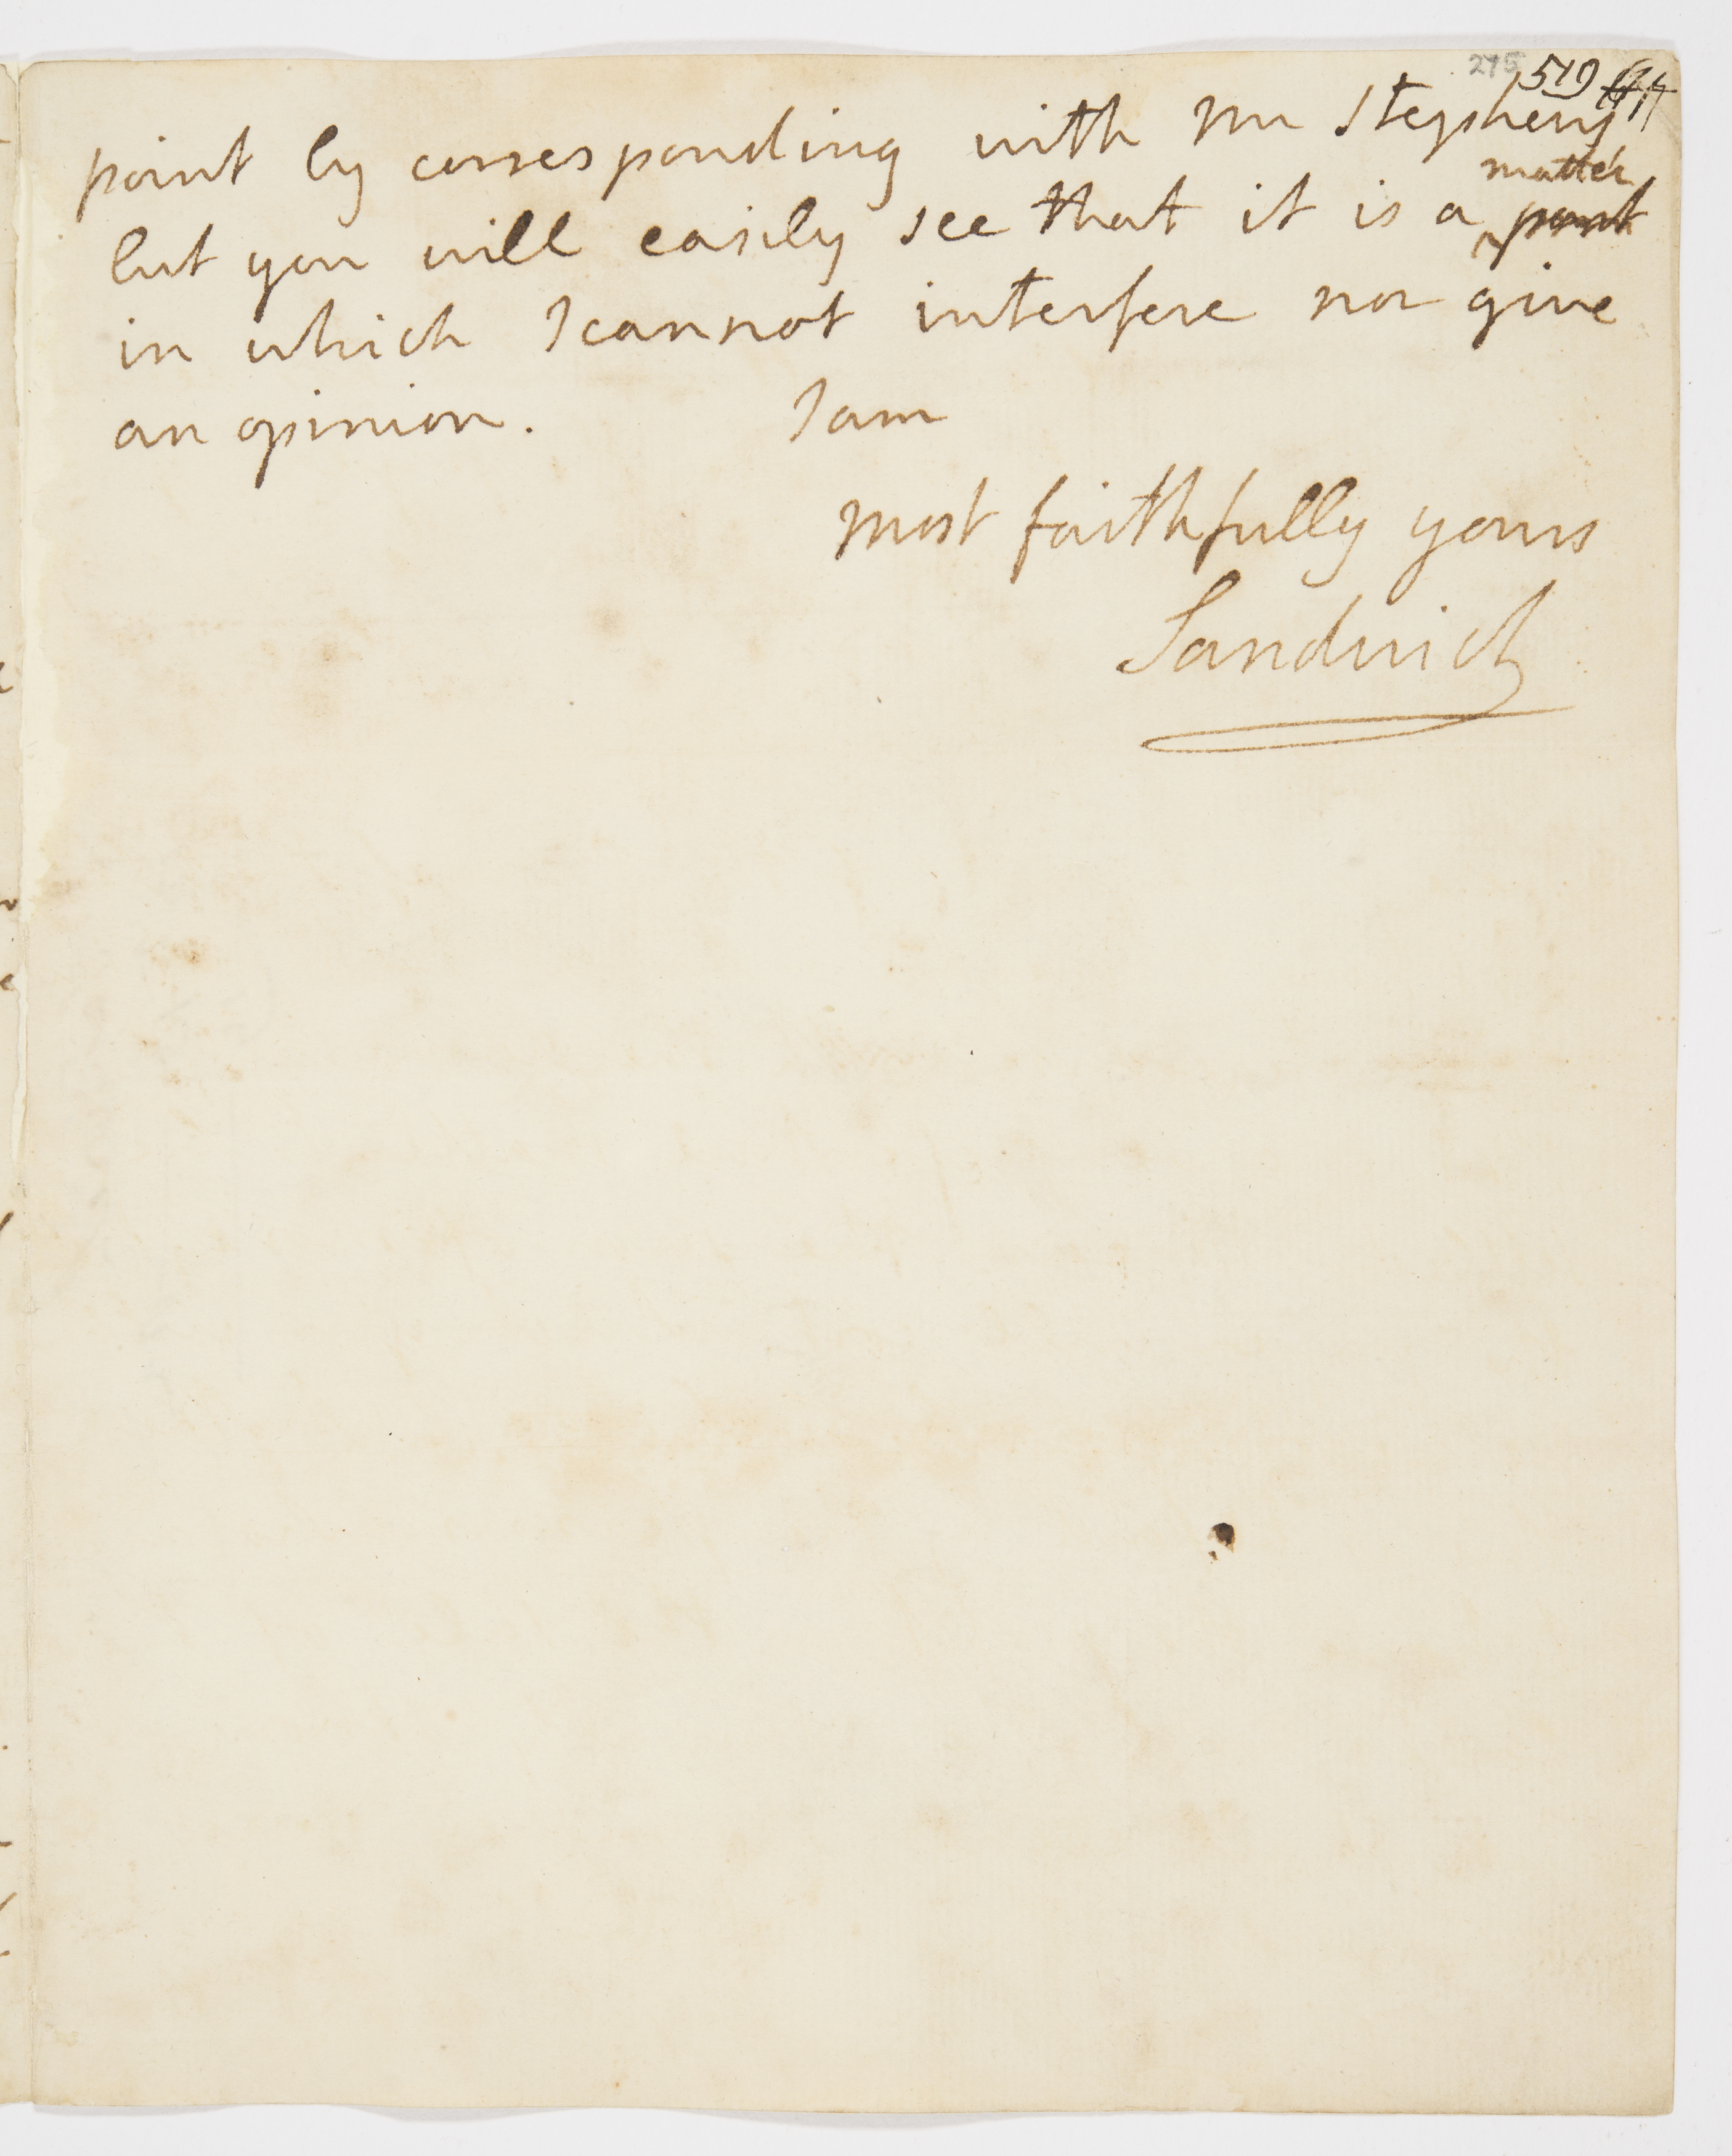 275 519
point by corresponding with Mr Stephens
matter
but you will easily see that it is a point
in which I cannot interfere nor give
an opinion. I am
most faithfully yours
Sandwich